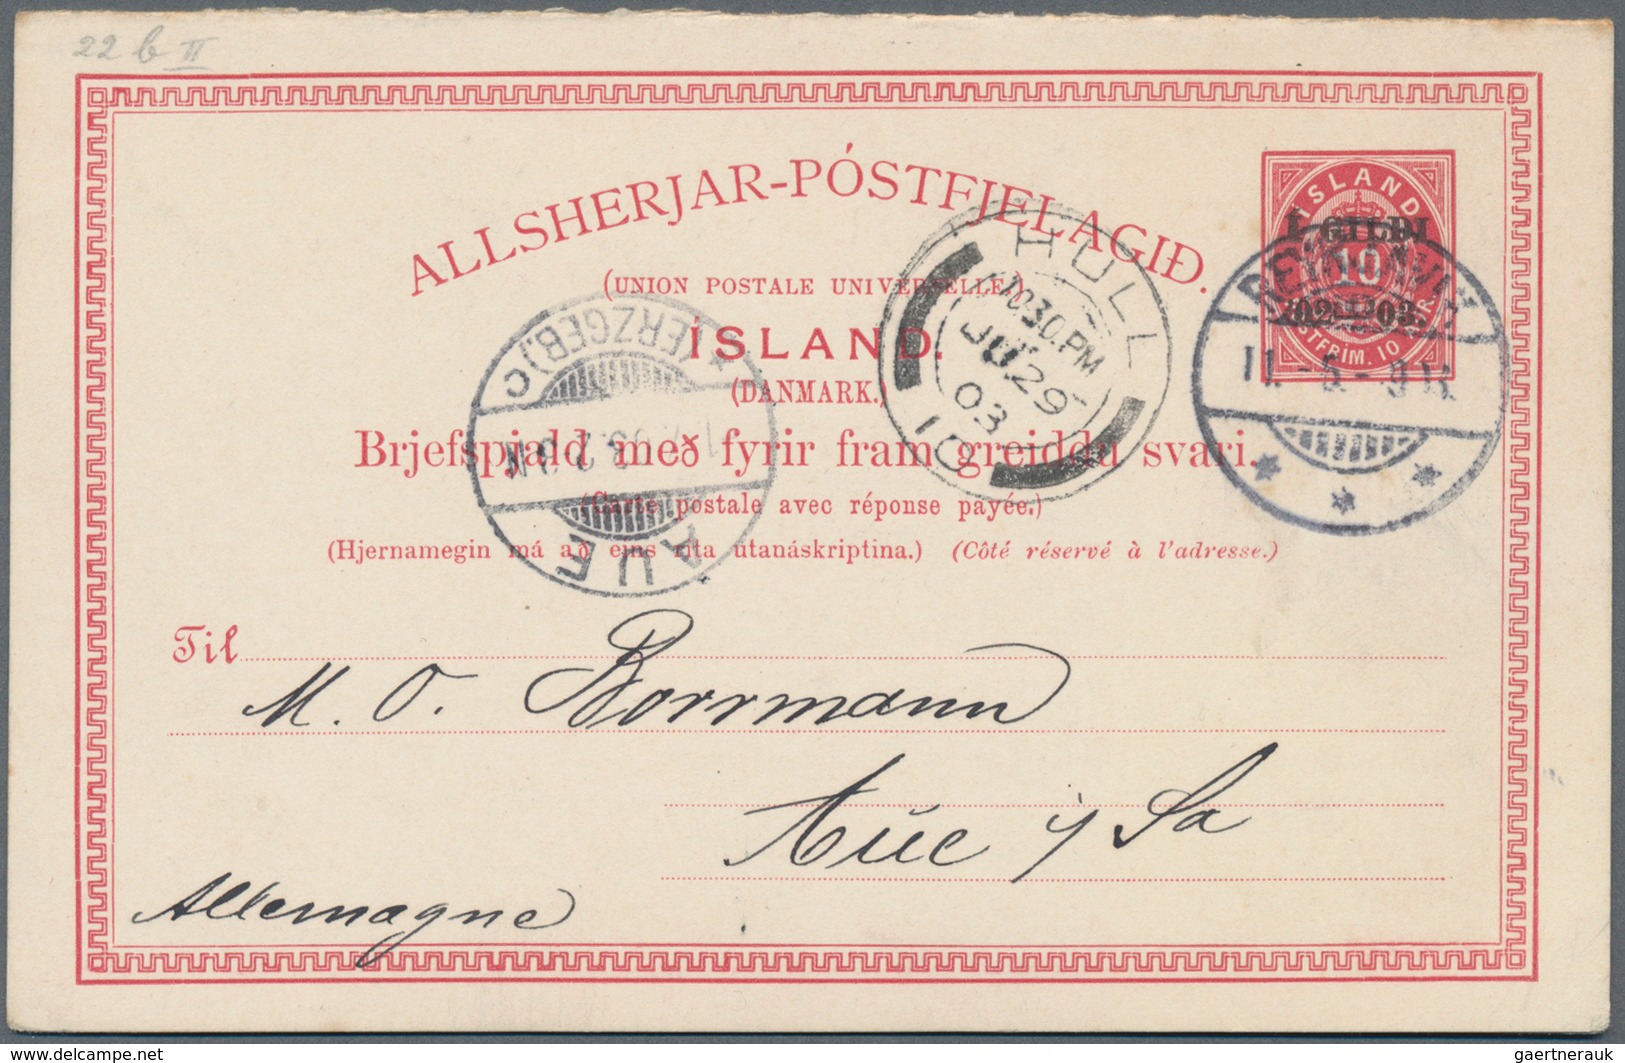 22 b II
ALLSHERJAR-PÓSTFJELAGIÐ.
(UNION POSTALE UNIVERSELLE.)
ÍSLAND.
(DANMARK.)
Brjefspjald með fyrir fram greiddu svari.
(Carte postale avec réponse payée.)
(Hjernamegin má að eins rita utanáskriptina.) (Côté réservé à l'adresse.)
ÍSLAND
Í GILDI
10
'02-'03.
FRIM. 10
HULL
10 30 PM
JU 29
03
10
AUE
(ERZGEB.) C
REYKJAVIK
11. - 5. -
Til
M. O. Borrmann
Aüe i/ Sa
Allemagne
gaertnerauk